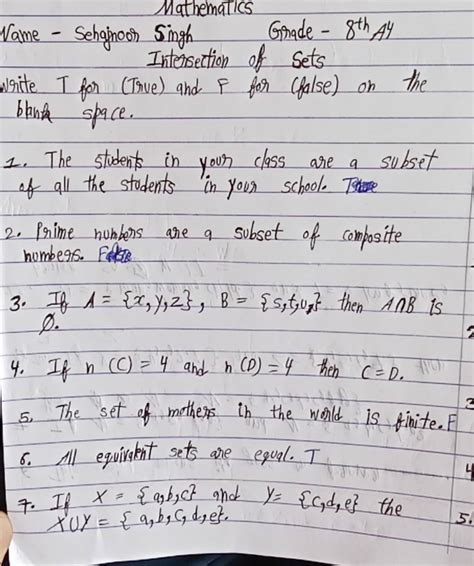 Mathematics
Name - Sehajnoor Singh Grade - 8th A4
Intersection of Sets
Write T for (True) and F for (false) on the
blank space.
1. The students in your class are a subset
of all the students in your school. T
2. Prime numbers are a subset of composite
numbers. False
3. If A = {x,y,z}, B = {s,t,u} then A∩B is
∅.
4. If n (C) = 4 and n (D) = 4 then C = D.
5. The set of mothers in the world is finite. F
6. All equivalent sets are equal. T
7. If X = {a,b,c} and Y = {c,d,e} the
X∪Y = {a,b,c,d,e}.
4
5.